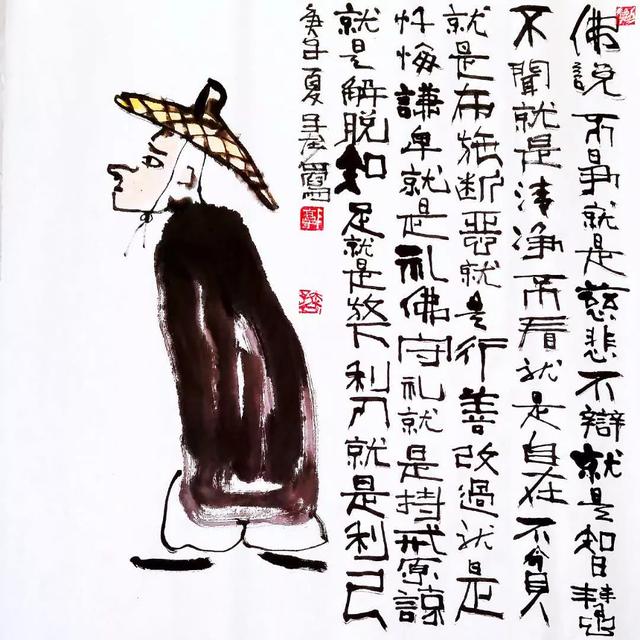 佛說不爭就是慈悲不辯就是智慧
不聞就是清淨不看就是自在不貪
就是布施斷惡就是行善改過就是
忏悔謙卑就是礼佛守礼就是持戒原諒
就是解脱知足就是放下利人就是利己
庚子夏